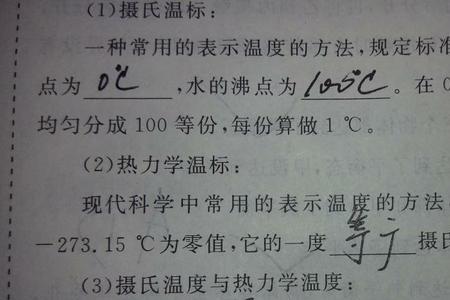 (1)摄氏温标:
一种常用的表示温度的方法,规定标准
点为 0℃ ,水的沸点为 100℃ 。在0
均匀分成 100 等份,每份算做 1 ℃。
(2)热力学温标:
现代科学中常用的表示温度的方法
－273.15 ℃为零值,它的一度 等于 摄氏
(3)摄氏温度与热力学温度: